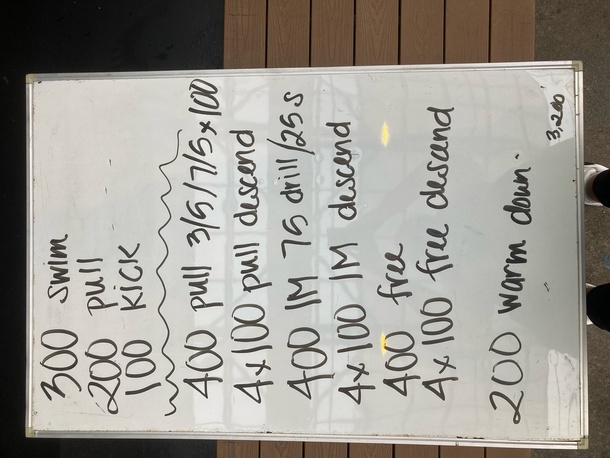 300 swim
200 pull
100 KICK
400 pull 3/5/7/5 x 100
4x100 pull descend
400 IM 75 drill/25 s
4x100 IM descend
400 free
4x100 free descend
200 warm down.
3,200